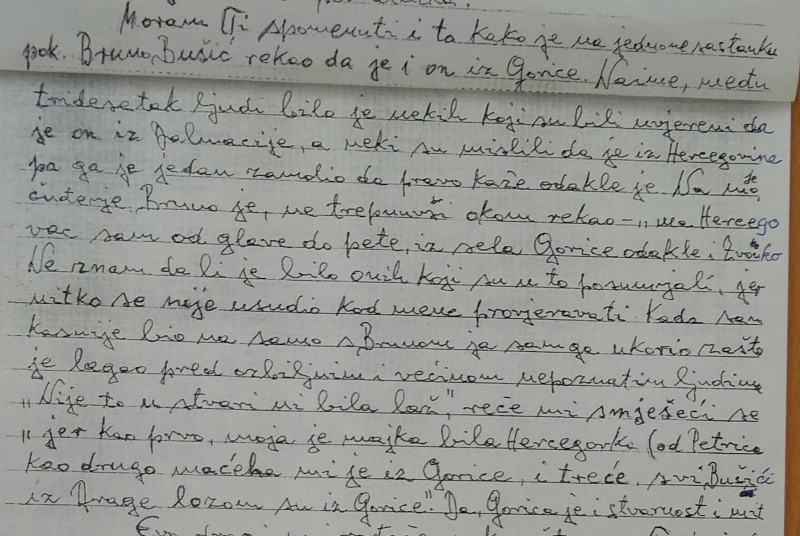 Moram Ti spomenuti i to kako je na jednome sastanku
pok. Bruno Bušić rekao da je i on iz Gorice. Naime, među
tridesetak ljudi bilo je nekih koji su bili uvjereni da
je on iz Dalmacije, a neki su mislili da je iz Hercegovine
pa ga je jedan zamolio da pravo kaže odakle je. Na moje
čuđenje, Bruno je, ne trepnuvši okom rekao – „ma Hercego
vac sam od glave do pete, iz sela Gorice odakle i Zvonko
Ne znam da li je bilo onih koji su u to posumnjali, jer
nitko se nije usudio kod mene provjeravati. Kada sam
kasnije bio na samo s Brunom ja sam ga ukorio zašto
je lagao pred ozbiljnim i većinom nepoznatim ljudima
„Nije to u stvari ni bila laž", reče mi smješeći se
„jer kao prvo, moja je majka bila Hercegovka (od Petrica
kao drugo maćeha mi je iz Gorice, i treće, svi Bušići
iz Drage lozom su iz Gorice". Da, Gorica je i stvarnost i mit